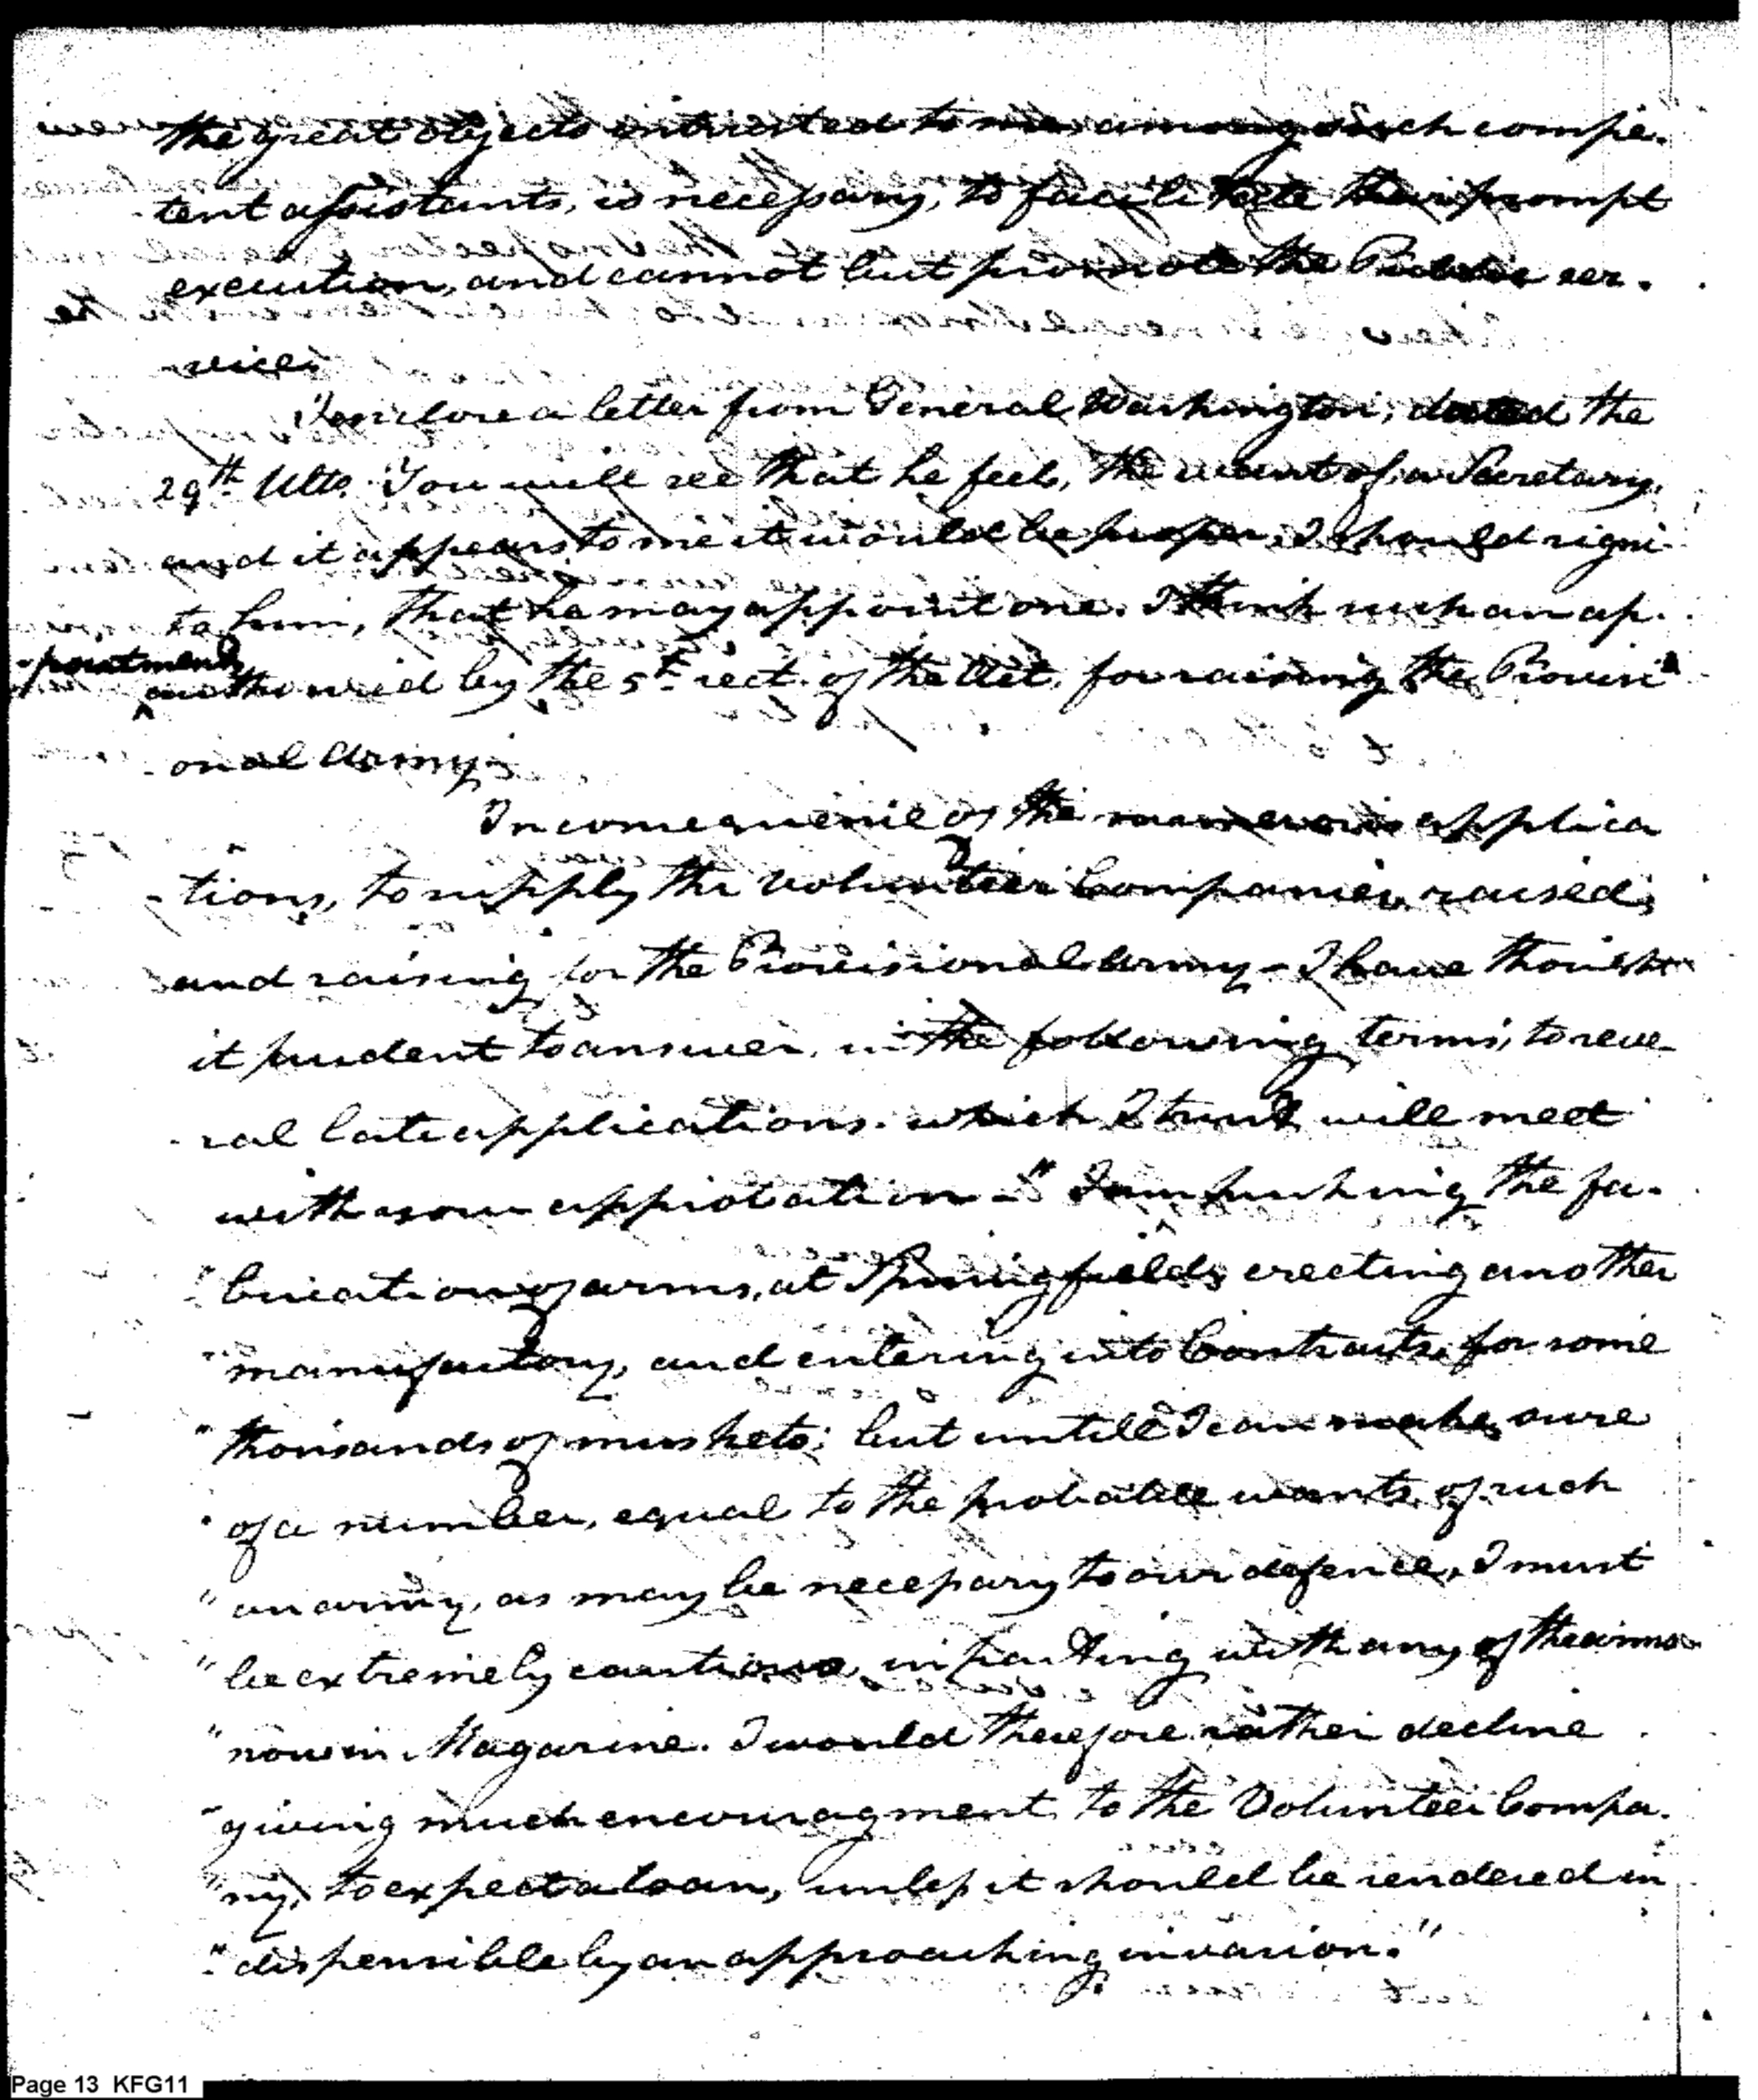 the great objects entrusted to me, among such compe-
tent assistants, is necessary, to facilitate their prompt
execution, and cannot but promote the Public ser-
vice.
I enclose a letter from General Washington, dated the
29th. Ulto. You will see that he feels, the want of, a Secretary,
and it appears to me it would be proper, I should signi-
to him, that he may appoint one. I think such an ap-
-pointment
authorized by the 5th. sect. of the Act, for raising the Provisi
onal Army.
In consequence of the numerous applica
-tions, to supply the Volunteer Companies, raised,
and raising for the Provisional Army - I have thought
it prudent to answer, in the following terms, to seve-
ral late applications. which I trust will meet
with your approbation - "I am pushing the fa-
"brication of arms, at Springfield, erecting another
"manufactory, and entering into Contracts, for some
"thousands of muskets; but untill I can make, sure
"of a number, equal to the probable wants, of such
"an army, as may be necessary to our defence, I must
"be extremely cautious, in parting with any of the arms
"now in Magazine. I would therefore rather decline
"giving much encouragment, to the Volunteer Compa-
"ny, to expect a loan, unless it should be rendered in
"dispensible by an approaching invasion."
Page 13 KFG11